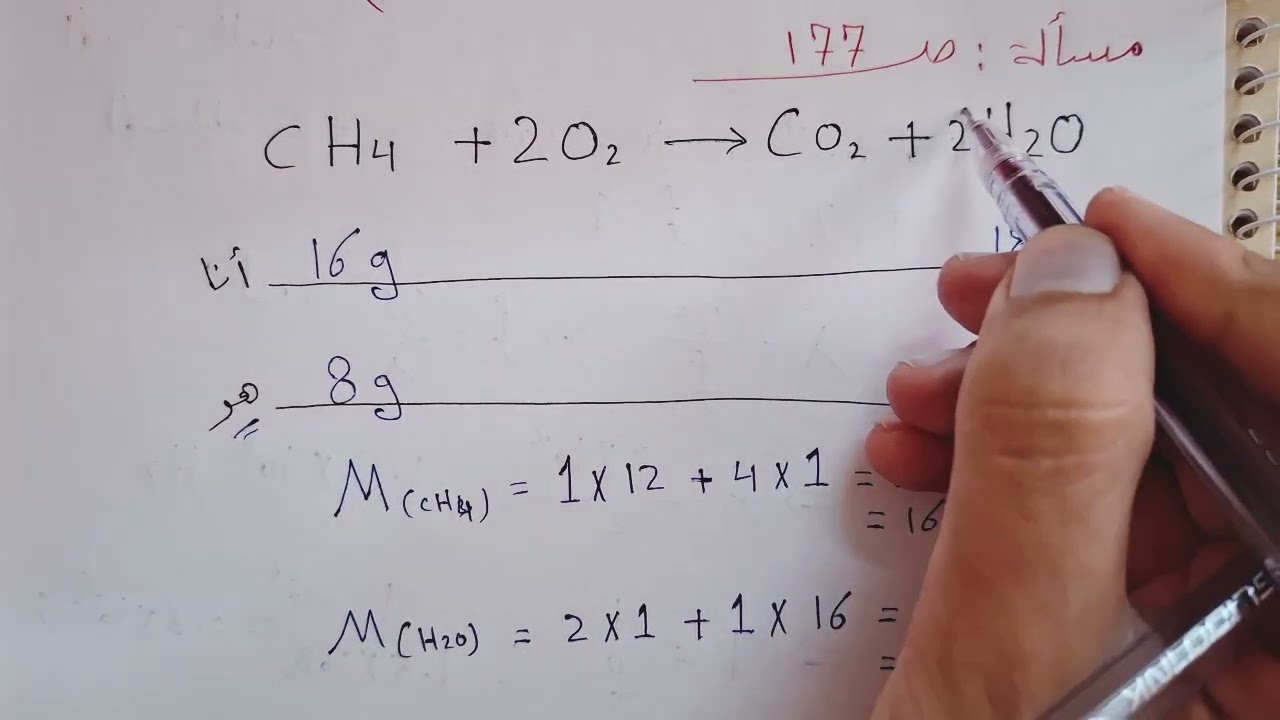 مسألة : ص 177
CH4 + 2O₂ → CO₂ + 2H₂O
أنا 16 g
هو 8 g
M(CH4) = 1 × 12 + 4 × 1 =
= 16
M(H2O) = 2 × 1 + 1 × 16 =
=